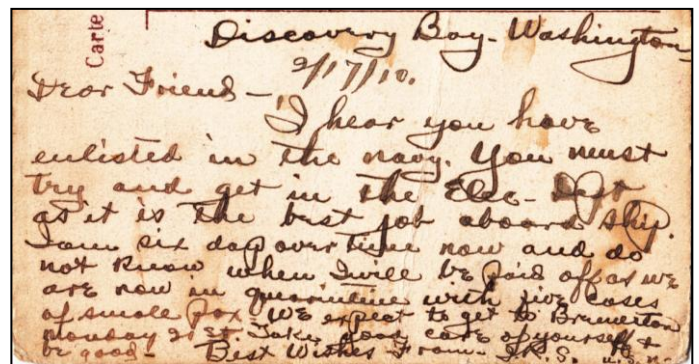 Carte
Discovery Bay - Washington
2/17/10.
Dear Friend -
I hear you have
enlisted in the navy. You must
try and get in the Elec - Dept
as it is the best job aboard ship.
I am six day over time now and do
not know when I will be paid off as we
are now in quarintine with five cases
of small pox. We expect to get to Bremerton
monday 21st. Take good care of yourself &
be good - Best Wishes From